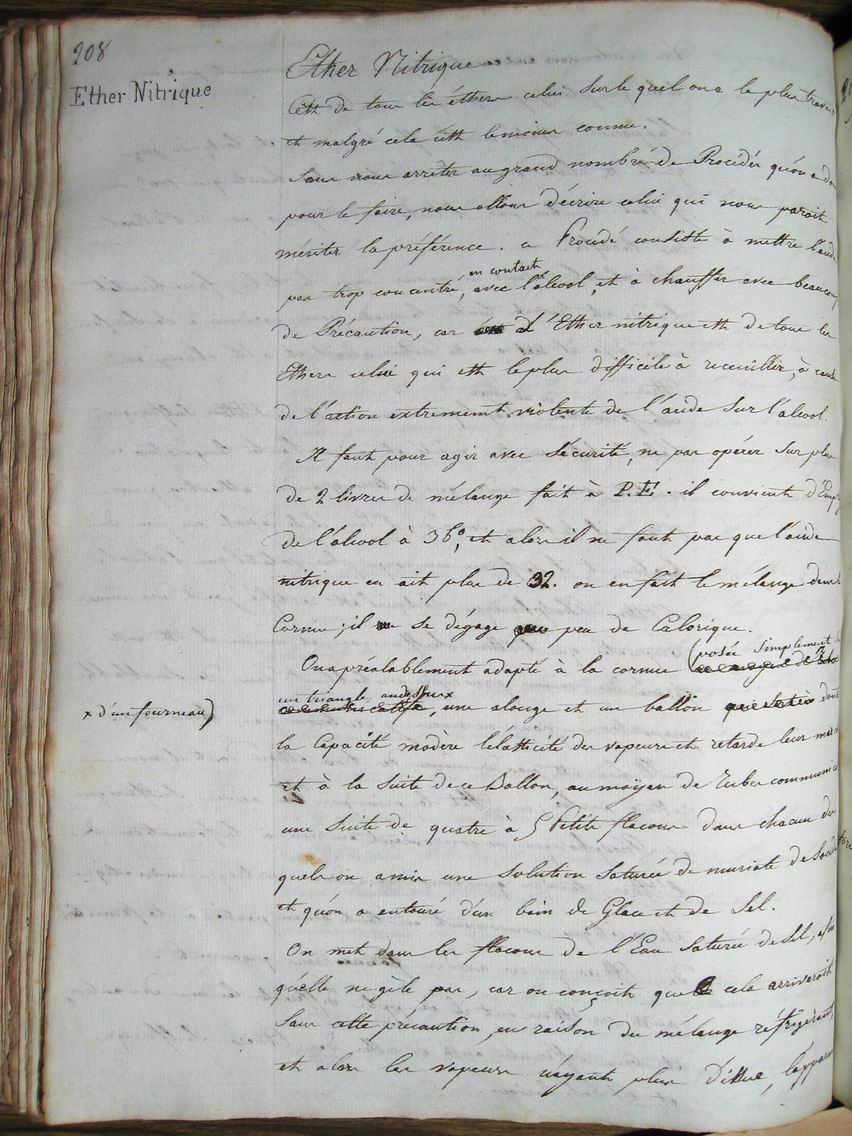 208
Ether Nitrique
Ether Nitrique
C'est de tous les éthers celui sur le quel on a le plus travaillé
et malgré cela c'est le moins connu.
Sans nous arrêter au grand nombre de Procédés qu'on a
pour le faire, nous allons décrire celui qui nous paroit
mériter la préférence. ce Procédé consiste à mettre l'acide
en contact
pas trop concentré, avec l'alcool, et à chauffer avec beaucoup
de Précaution, car L'Ether nitrique est de tous les
Ethers celui qui est le plus difficile à receuillir, à cause
de l'action extremement violente de l'acide sur l'alcool.
Il faut pour agir avec sécurité, ne pas opérer sur plus
de 2 livres de mélange fait à P.E. il convient d'Emp
de l'alcool à 36°, et alors il ne faut pas que l'acide
nitrique en ait plus de 32. on en fait le mélange dans la
Cornue; il se dégage peu de Calorique.
On a préalablement adapté à la cornue (posée simplement
un triangle au dessus x
, une alonge et un ballon dont
x d'un fourneau)
la Capacité modère l'élasticité des vapeurs et retarde leur
et à la suite de ce Ballon, au moÿen de Tubes communi
une suite de quatre à 5 Petits flacons dans chacun des
quels on a mis une solution saturée de muriate de Soude
et qu'on a entouré d'un bain de Glace et de Sel.
On met dans les flacons de l'Eau saturée de Sel, afin
qu'elle ne gèle pas, car on conçoit que cela arriveroit
sans cette précaution, en raison du mélange réfrigérant,
et alors les vapeurs n'ayant plus d'issue, l'appareil